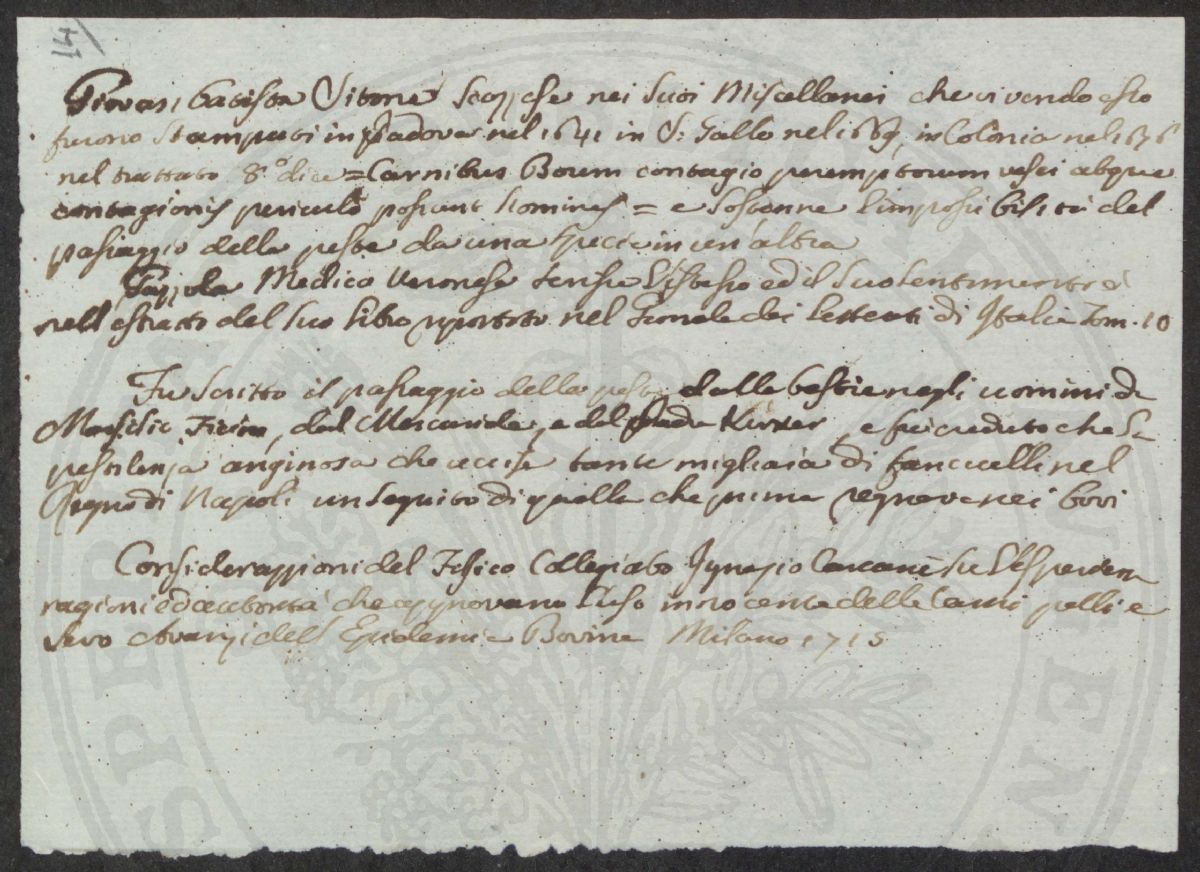 Giovan, batista Vitone Scozzese nei Suoi Miscellanei che vivendo esso
furono Stampati in Padova nel 1641 in S: Gallo nel 1669, in Colonia nel 1676
nel trattato 8.º dice = Carnibus Boum contagio peremptorum vesci absque
contagionis periculo possunt Homines = e Sostenne l'impossibilità del
passaggio della peste da una specie in un'altra
Medico Veronese scrisse l'istesso ed il Suo Sentimento è
nell'estratto del Suo libro riportato nel Giornale dei Letterati di Italia Tom. 10
Fu Scritto il passaggio della peste dalle bestie negli uomini da
Marsilio Ficin, dal Mercuriale, e dal Padre Kirker, e fu creduto che la
pestilenza anginosa che uccise tante migliaia di fanciulli nel
Regno di Napoli un seguito di quella che prima regnava nei bovi
Considerazzioni del Fisico Collegiato Ignazio Carcani Su l'Esperienza
ragioni ed autorità che approvano l'uso innocente delle Carni pelli e
Sevo Avanzi dell'Epidemia Bovina Milano 1715